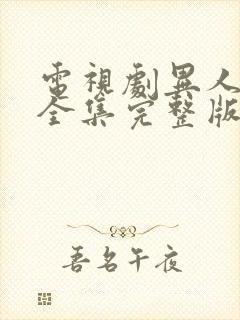 電視劇異人
全集完整版
吾名午夜